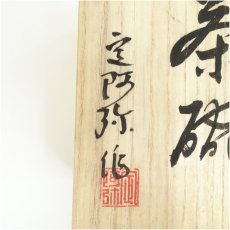 茶碗
定阿弥作